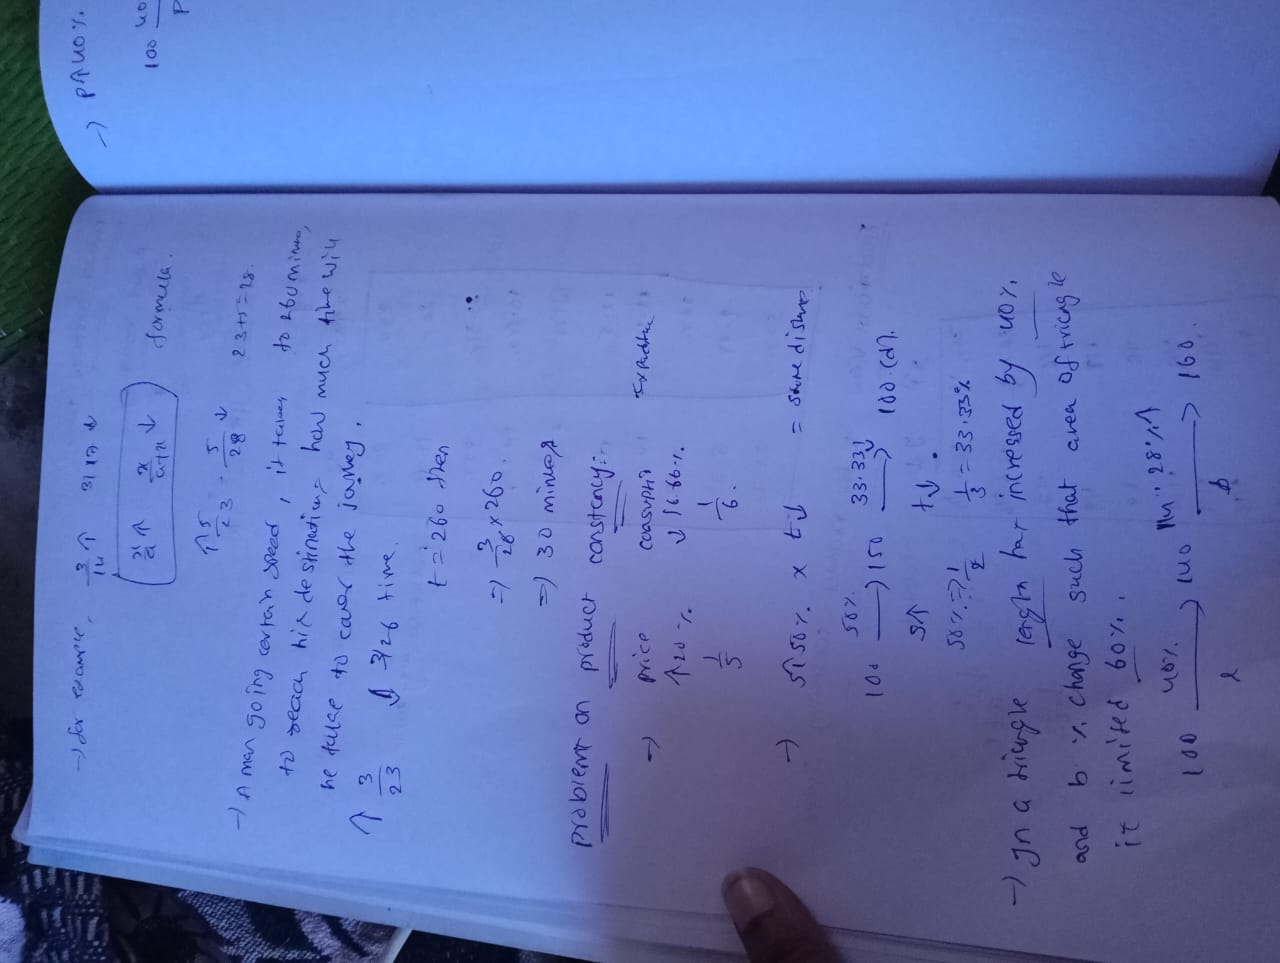 → for example, 3/14 ↑ 3/17 ↓
x/a ↑ x/a+x ↓ formula.
↑ 5/23 · 5/28 ↓ 23+5=28.
→ A man going certain speed, it takes to 260 minutes,
to reach his destination, how much time will
he take to cover the journey.
↑ 3/23 ↓ 3/26 time.
t = 260 then
⇒ 3/26 × 260
⇒ 30 minutes
problems on product constancy:-
→ price
↑ 20% ↓ 16.66%.
1/5 1/6.
→ S↑ 50% × t↓ = same distance
100 50% → 150 33.33↓ → 100 (d).
S↑ t↓.
50% ⇒ 1/2 1/3 = 33.33%
→ In a triangle length has increased by 40%
and b % change such that area of triangle
is limited 60%.
100 40% → 140 14.28%↑ → 160.
l b
→ P↑ 40%.
100 40
P